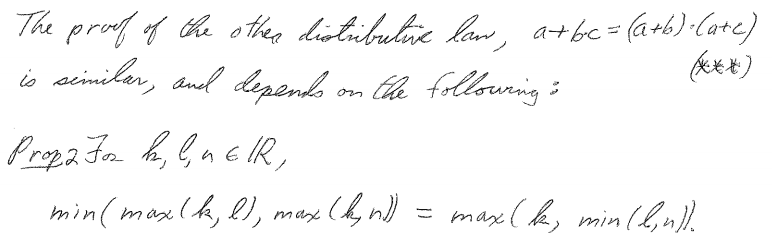 The proof of the other distributive law, a+bc = (a+b)·(a+c)
is similar, and depends on the following: (***)
Prop 2 For k, l, n ∈ ℝ,
min(max(k, l), max(k, n)) = max(k, min(l, n)).